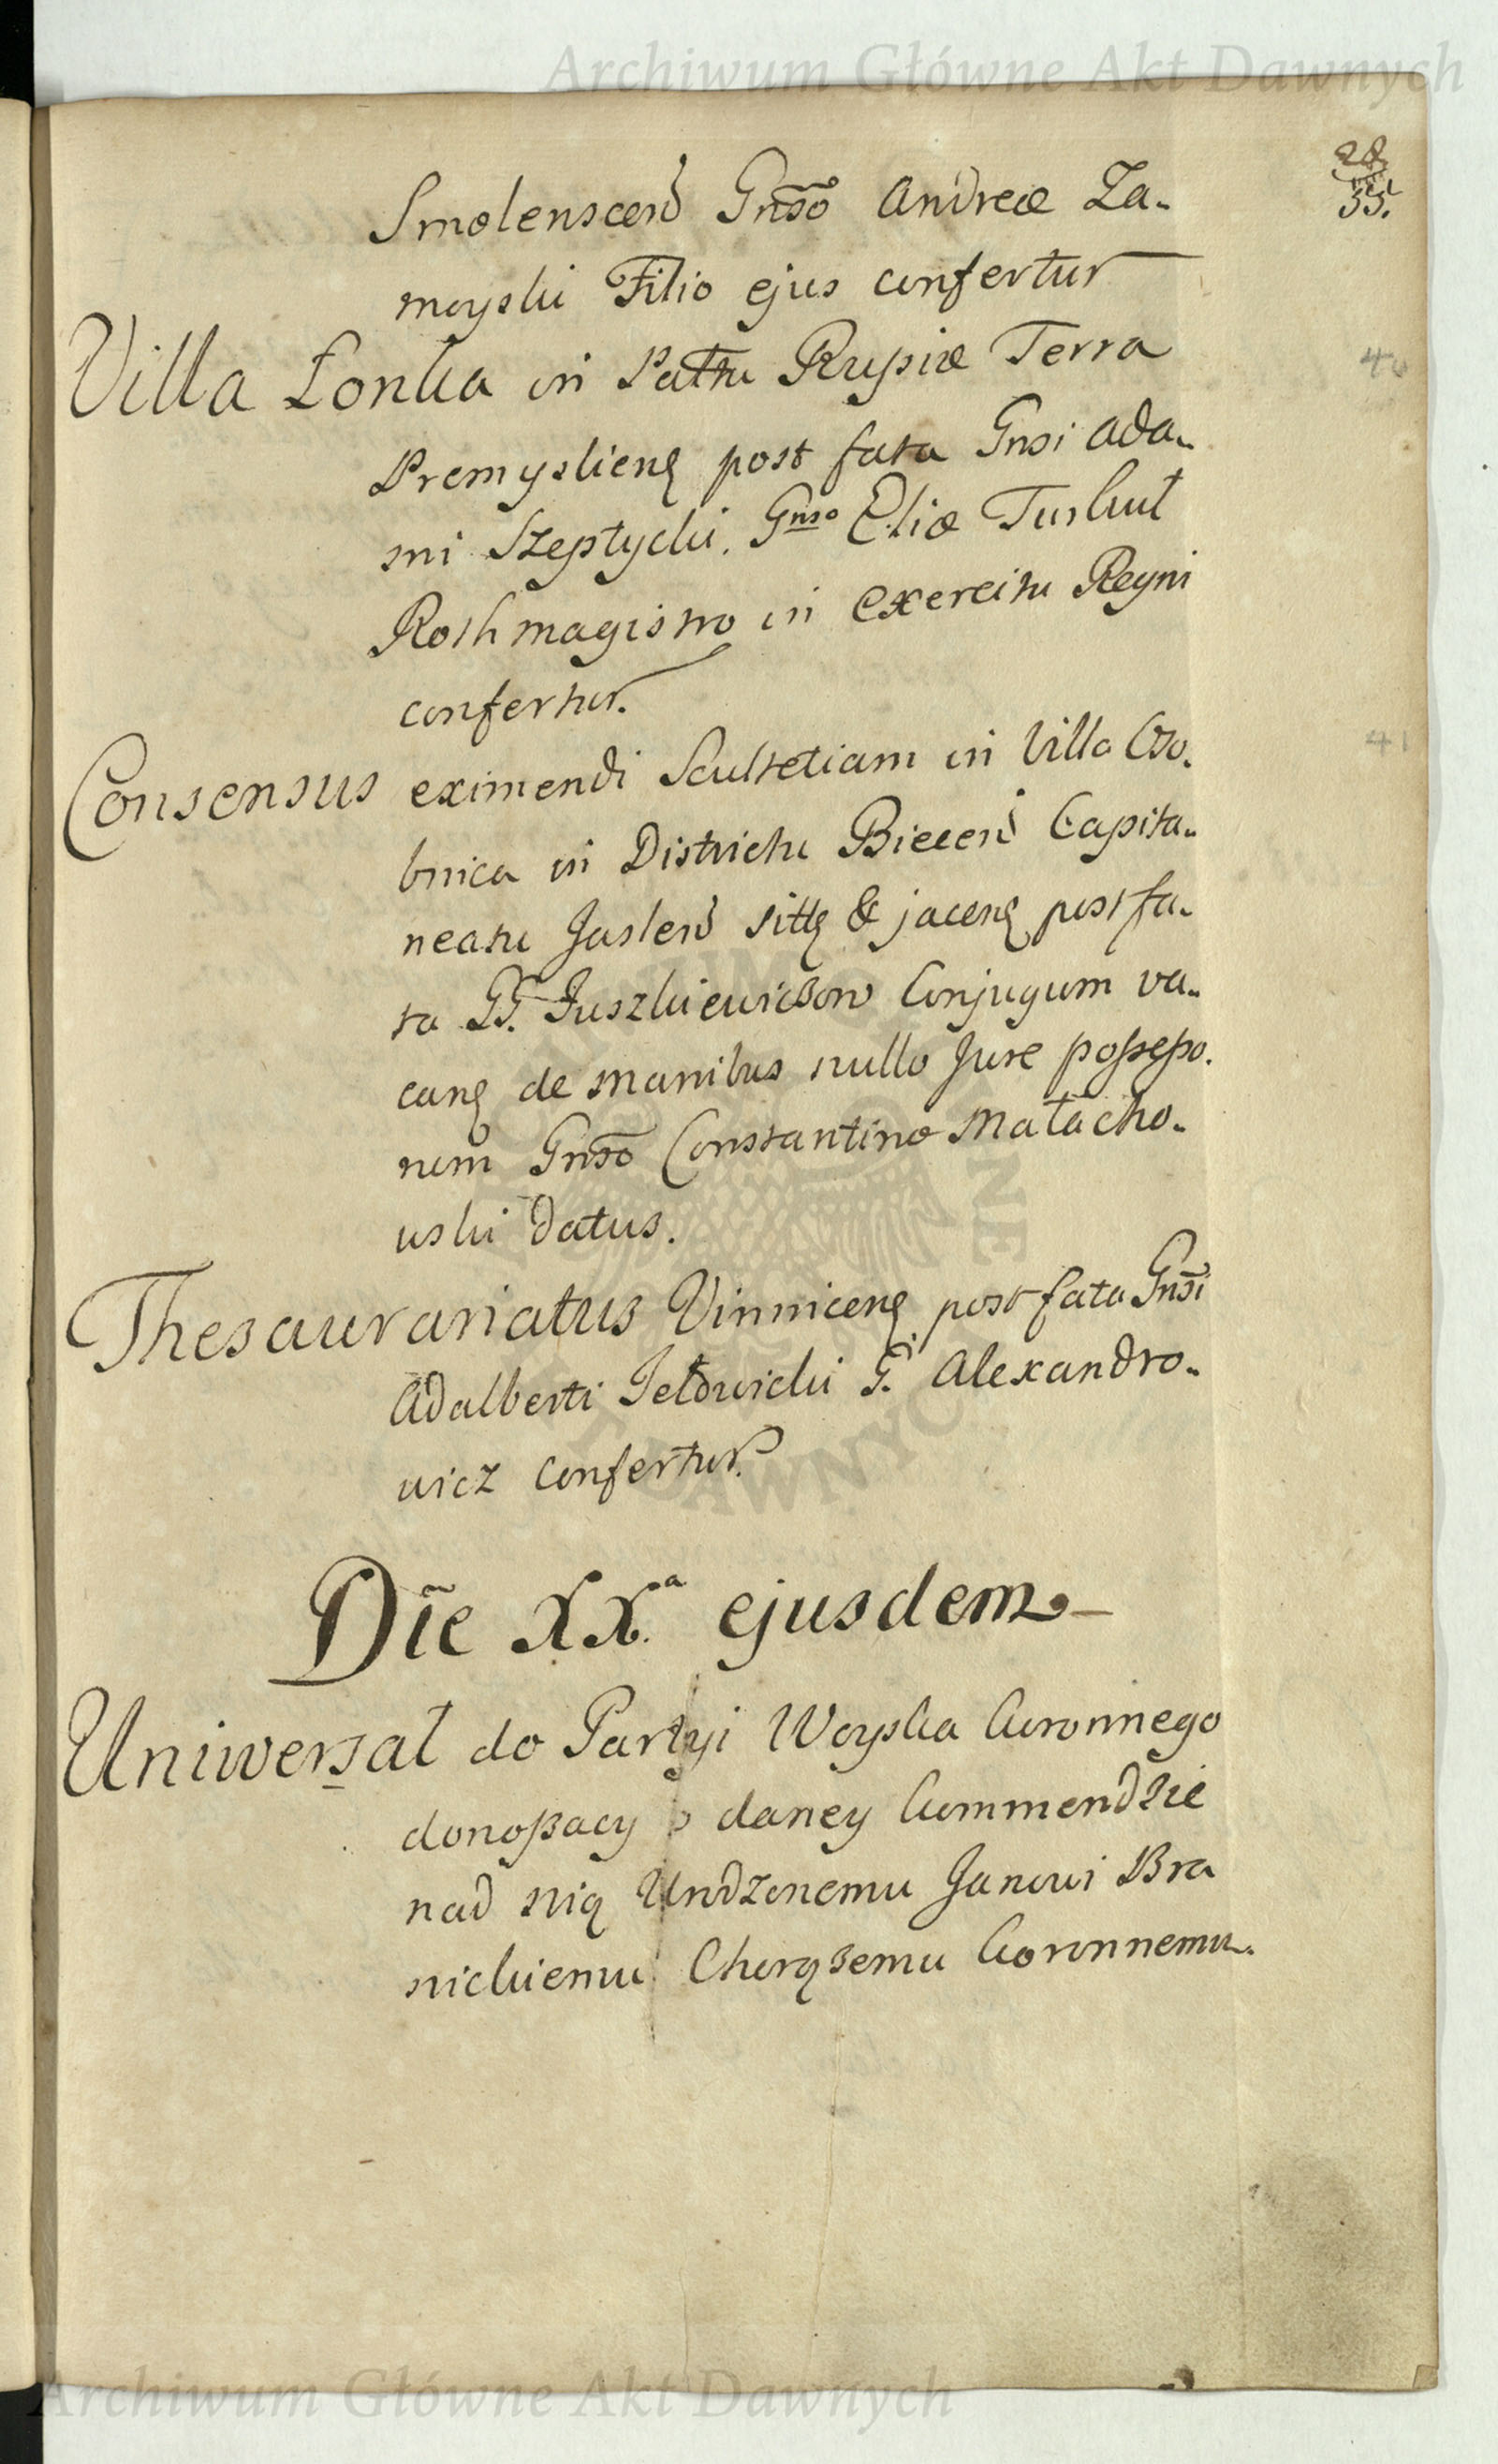 Archiwum Główne Akt Dawnych
28
35.
Smolenscen̄ Gnso Andreæ Za-
moyski Filio ejus confertur
Villa Łonka in Pattu Rupiæ Terra
40
Premysliens post fata Gnsi Ada-
mi Szeptycki. Gnso Eliæ Turkuł
Rothmagistro in Exercitu Regni
confertur.
Consensus eximendi Scultetiam in Villa Oso-
41
bnica in Districtu Biecen̄ Capita-
neatu Jaslen̄ sittæ & jacens post fa-
ta GG. Juszkiewiczow Conjugum va-
cans de manibus nullo Jure possesso-
rum Gnso Constantino Małacho-
wski datus.
Thesaurariatus Vinnicens post fata Gnsi
Adalberti Jełowicki G. Alexandro-
wicz confertur.
Die XX.ª ejusdem
Uniwersał do Partyi Woyska Koronnego
donoszący o daney Kommendzie
nad nią Urodzonemu Janowi Bra
nickiemu Chorązemu Koronnemu.
Archiwum Główne Akt Dawnych